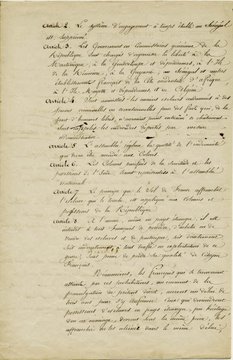 Article 2. Le système d'engagement à temps établi au Sénégal
est supprimé.
Article 3. Les Gouverneurs ou Commissaires généraux de la
République sont chargés d'appliquer la liberté à la
Martinique, à la Guadeloupe et dépendances, à l'Ile
de la Réunion, à la Guyane, au Sénégal et autres
établissements français de la Côte occidentale d'Afrique,
à l'Ile Mayotte et dépendances et en Algérie.
Article 4. Sont amnistiés les anciens esclaves condamnés à des
peines afflictives ou correctionnelles pour des faits qui,
à des hommes libres, n'auraient point entraîné ce châtiment.
Sont rappelés les individus déportés par mesure
administrative.
Article 5. L'assemblée réglera la quotité de l'indemnité
qui devra être accordée aux Colons.
Article 6. Les Colonies purifiées de la servitude et les
possessions de l'Inde seront représentées à l'assemblée
nationale.
Article 7. Le principe que le sol de France affranchit
l'esclave qui le touche, est appliqué aux colonies et
possessions de la République.
Article 8. A l'avenir, même en pays étranger, il est
interdit à tout Français de posséder, d'acheter ou de
vendre des esclaves et de participer, soit directement,
soit indirectement à tout trafic ou exploitation de ce
genre,
français.
Néanmoins, les français
atteints par ces prohibitions, au moment de la
promulgation du présent décret, auront un délai de
trois ans pour s'y conformer. Ceux qui deviendront
possesseurs d'esclaves en pays étranger, par héritage,
don ou mariage, devront, sous la même peine, les
affranchir ou les aliéner dans le même délai,